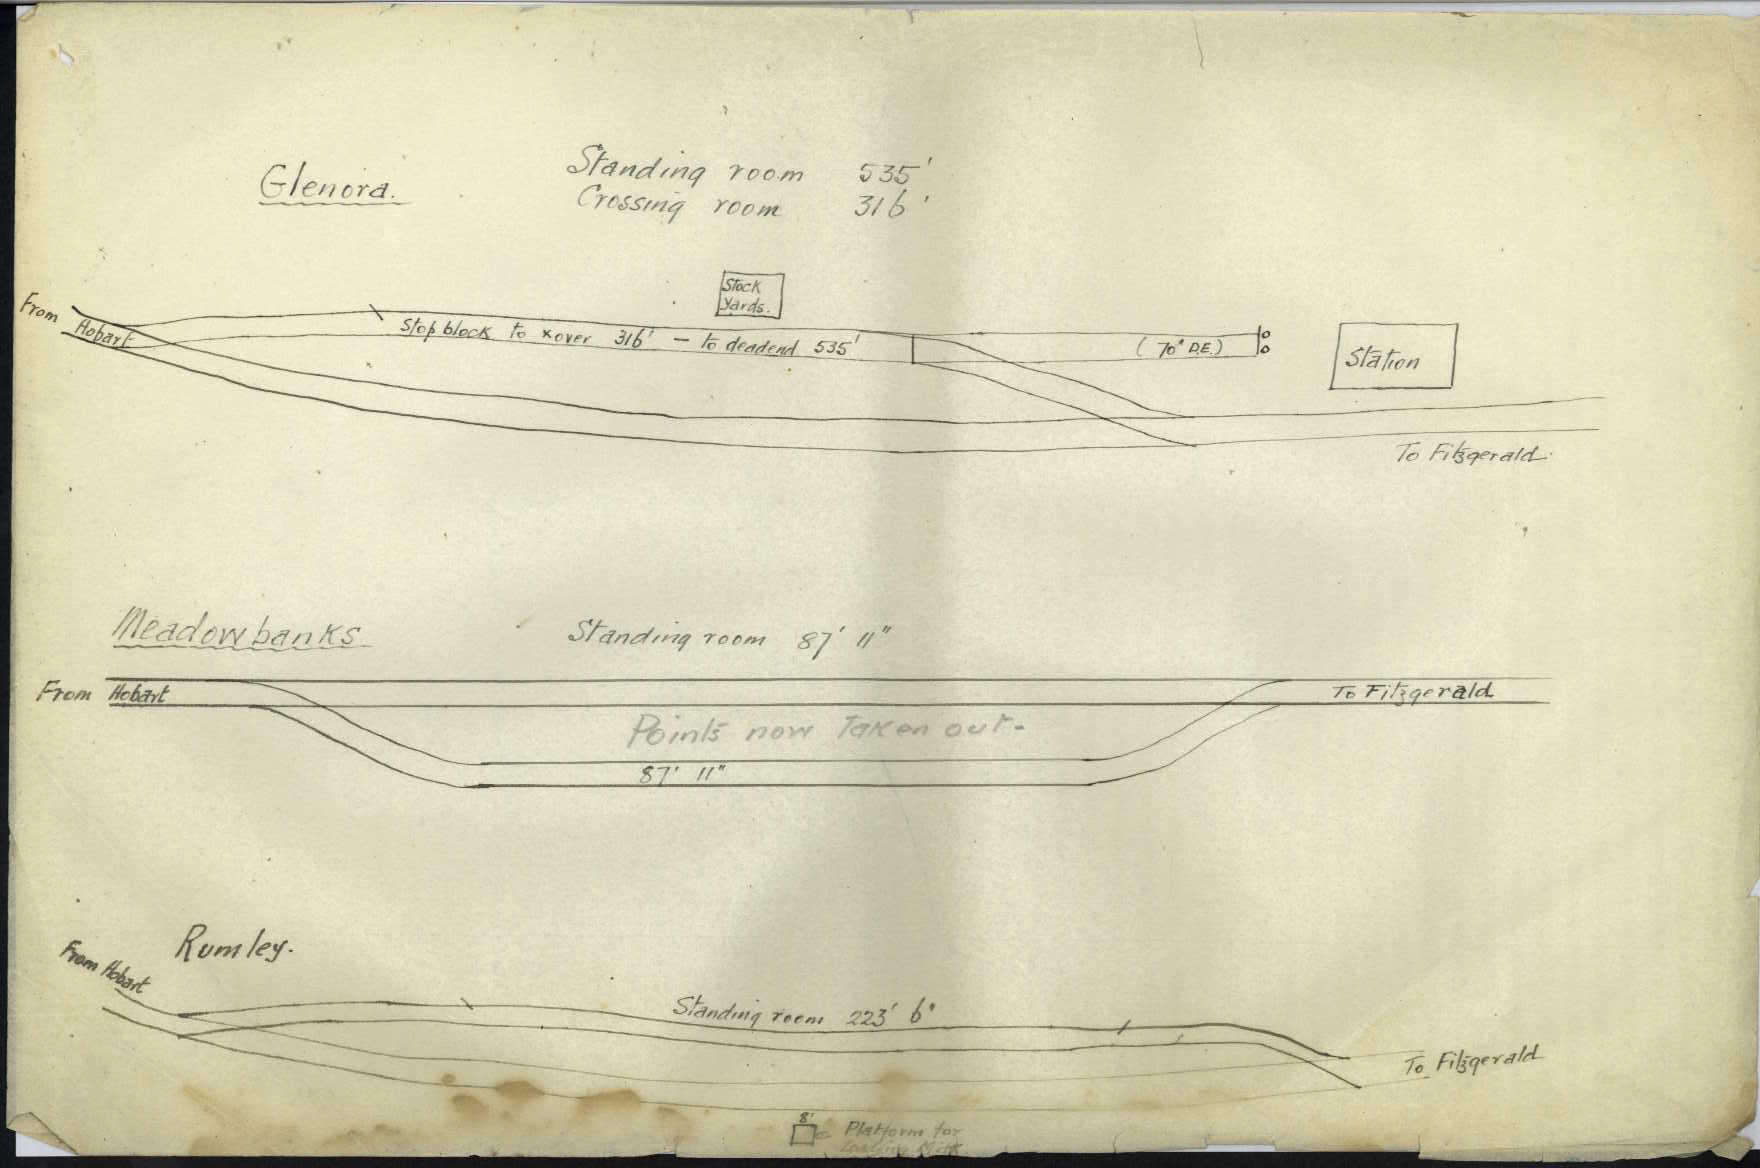 Glenora.
Standing room 535'
Crossing room 316'
Stock
Yards.
From Hobart
Stop block to xover 316' — to deadend 535'
(70' D.E.)
Station
To Fitzgerald.
Meadowbanks
Standing room 87' 11"
From Hobart
To Fitzgerald
Points now taken out -
87' 11"
Rumley.
From Hobart
Standing room 223' 6"
To Fitzgerald
8'
Platform for
loading Milk